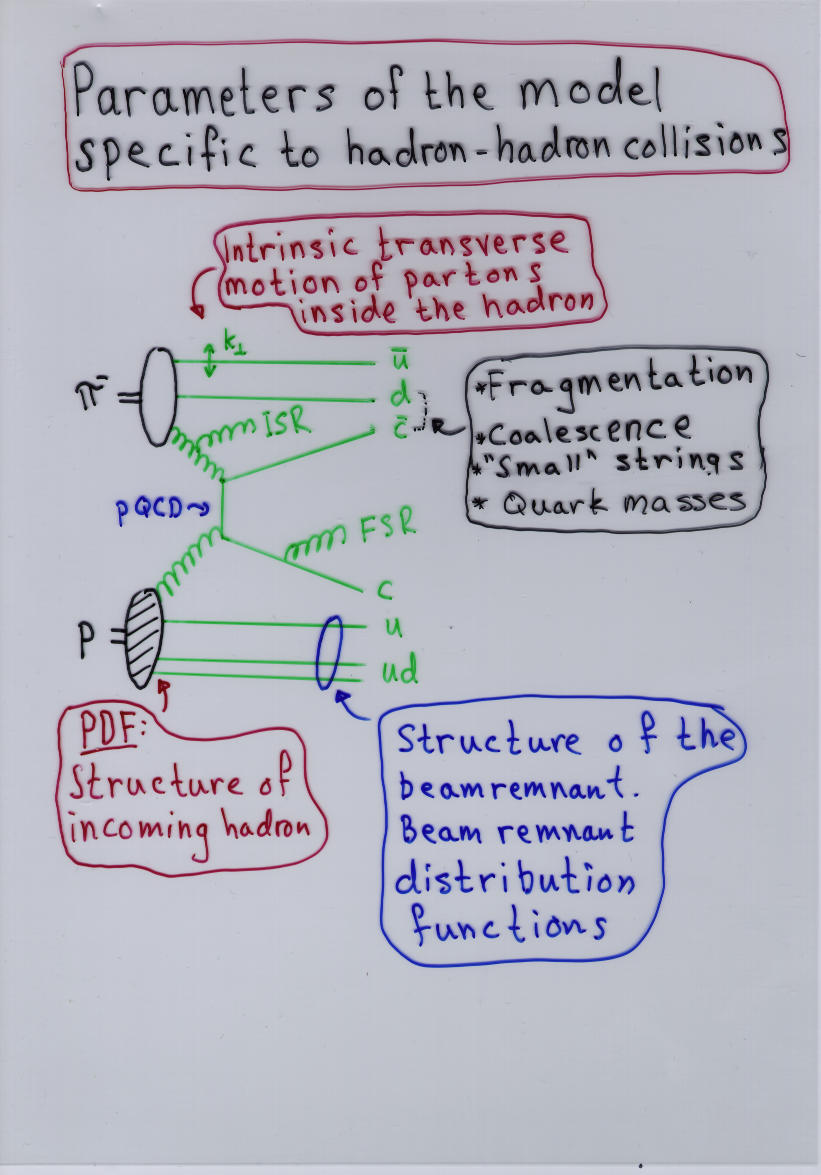 Parameters of the model
specific to hadron-hadron collisions
Intrinsic transverse
motion of partons
inside the hadron
k⊥
ū
π⁻
d
*Fragmentation
ISR
c̄
*Coalescence
*"Small" strings
* Quark masses
pQCD
FSR
c
p
u
ud
PDF:
Structure of
incoming hadron
Structure of the
beamremnant.
Beam remnant
distribution
functions